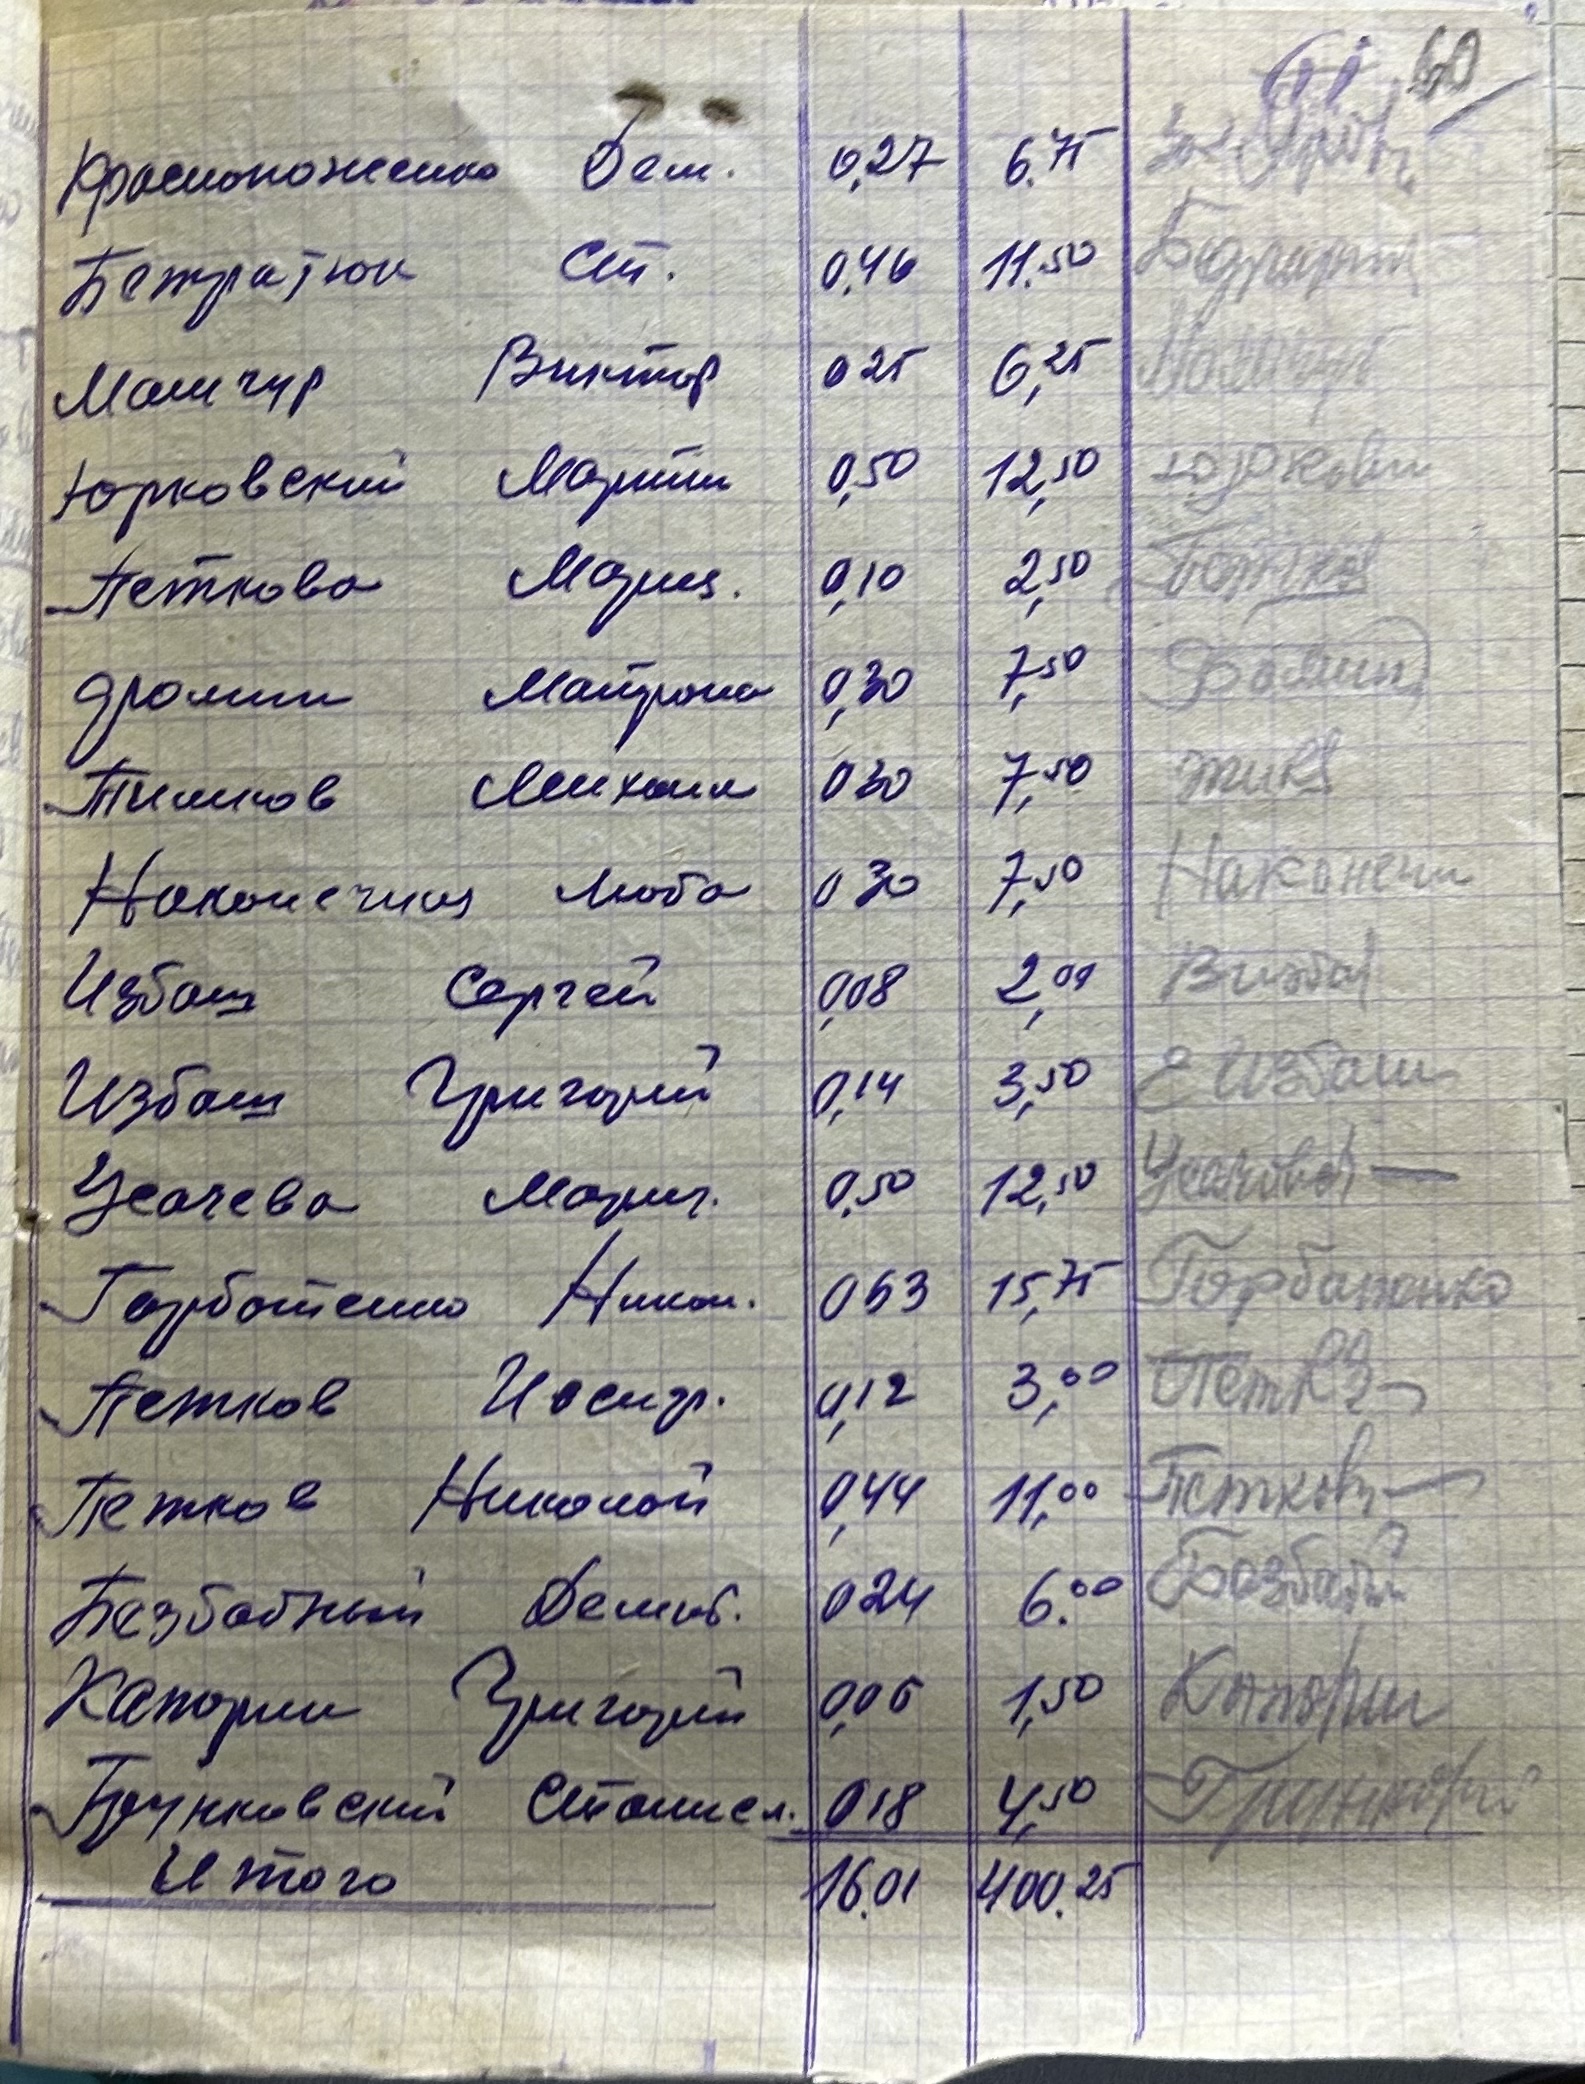 60
Красноноженко Дем. 0,27 6.75
Бежратюк Ст. 0,46 11.50
Мамчур Виктор 0 25 6,25
Юрковский Мартин 0,50 12,50 Юрковски
Петкова Мария. 0,10 2,50
Фролин Матрона 0,30 7,50
Тимков Михаил 0 30 7,50
Наконечная Люба 0 30 7,50 Наконечн
Избаш Сергей 0,08 2,00
Избаш Григорий 0,14 3,50 Е Избаш
Усачева Мария. 0,50 12,50 Усачова
Горбатенко Никол. 0 63 15,75 Горбатенко
Петков Иосиф. 0,12 3,00
Петков Николай 0,44 11,00 Петков
Беззбабный Демид. 0 24 6.00
Капорин Григорий 0,06 1,50 Капорин
Грунковский Станисл. 0 18 4,50
Итого 16.01 400.25